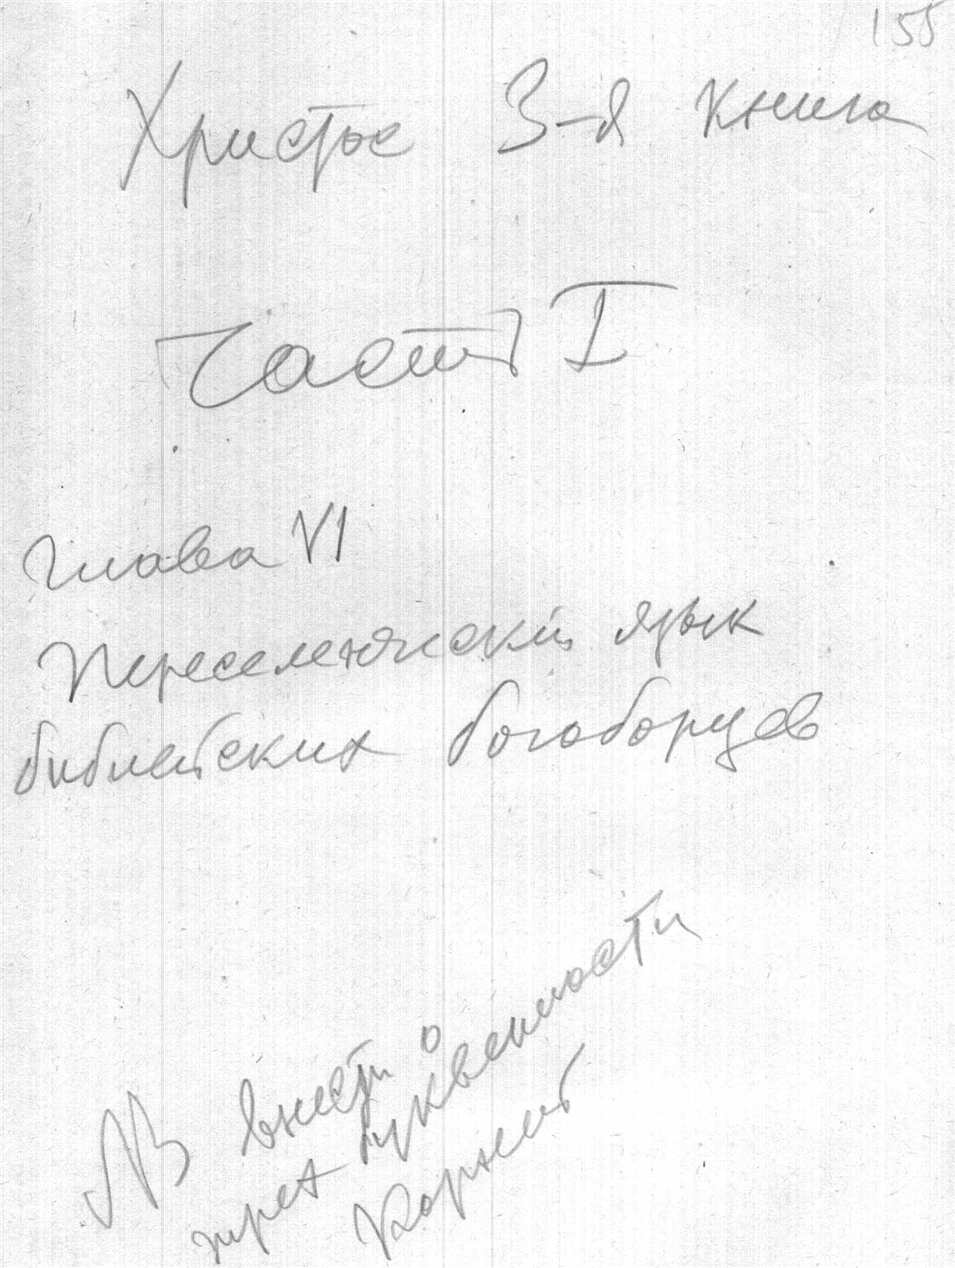 155
Христос 3-я Книга
Часть I
Глава VI
Переселенческий язык
библейских богоборцев
NB внести о
трехбуквенности
Корней